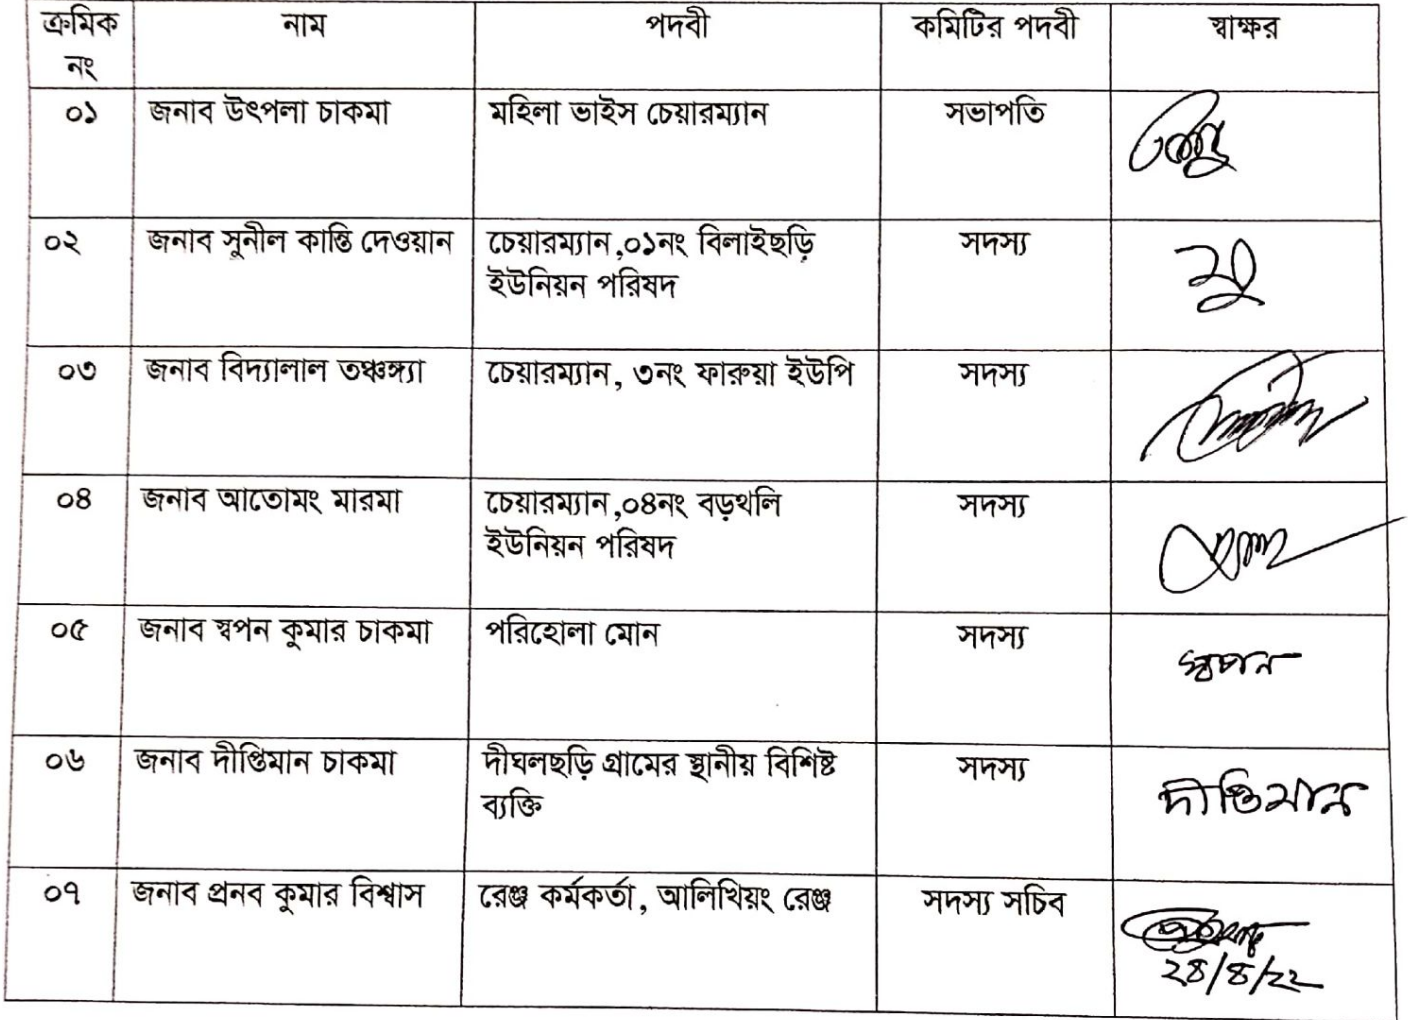 ক্রমিক নং	নাম	পদবী	কমিটির পদবী	স্বাক্ষর
০১	জনাব উৎপলা চাকমা	মহিলা ভাইস চেয়ারম্যান	সভাপতি
০২	জনাব সুনীল কান্তি দেওয়ান	চেয়ারম্যান,০১নং বিলাইছড়ি	সদস্য
ইউনিয়ন পরিষদ
০৩	জনাব বিদ্যালাল তঞ্চঙ্গ্যা	চেয়ারম্যান, ৩নং ফারুয়া ইউপি	সদস্য
০৪	জনাব আতোমং মারমা	চেয়ারম্যান,০৪নং বড়থলি	সদস্য
ইউনিয়ন পরিষদ
০৫	জনাব স্বপন কুমার চাকমা	পরিহোলা মোন	সদস্য	স্বপন
০৬	জনাব দীপ্তিমান চাকমা	দীঘলছড়ি গ্রামের স্থানীয় বিশিষ্ট	সদস্য	দীপ্তিমান
ব্যক্তি
০৭	জনাব প্রনব কুমার বিশ্বাস	রেঞ্জ কর্মকর্তা, আলিখিয়ং রেঞ্জ	সদস্য সচিব
২৪/৪/২২